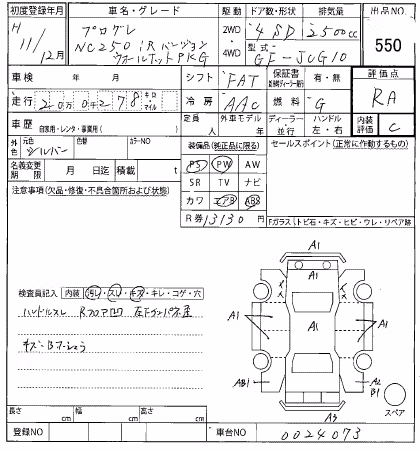 初度登録年月 車名・グレード 駆動 ドア数・形状 排気量 出品NO
H 11/12月 プログレ 2WD 4SD 2500cc 550
NC250 iRバージョン 4WD 型式 GF-JCG10
ウォールナットPKG
車検 年 月 シフト FAT 保証書 有・無 評価点
走行 2万0千278 キロ マイル 冷房 AAC 燃料 G RA
車歴 自家用・レンタ・事業用( ) 定員 人 外車モデル 年 ディーラー・並行 ハンドル 左・右 内装評価 C
外色 元色 シルバー 色替 カラーNO
装備品(純正品に限る) セールスポイント(正常に作動するもの)
名義変更期限 月 日迄 積載 t
PS PW AW
注意事項(欠品・修復・不具合箇所および状態)
SR TV ナビ
カワ エアB ABS
R券 13130 円
Fガラス(トビ石・キズ・ヒビ・ウレ・リペア跡
A1
検査員記入 内装 汚レ・スレ・キズ・キレ・コゲ・穴
ハンドルスレ Rフロア凹
キズ・Bホショウ
A1 A1 A1
AB1 A2 B1
A3
スペア
長さ cm 幅 cm 高さ cm
登録NO 車台NO 0024073